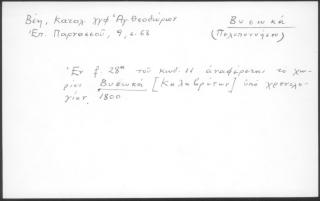 Βέη, Καταλ. χγφ Ἁγ. Θεοδώρων
Ἐπ. Παρνασσοῦ, 9, σ. 63
Βυσωκά
(Πελοποννήσου)
Ἐν f. 28α τοῦ κωδ. 11 ἀναφέρεται τὸ χω-
ρίον Βυσωκά [Καλαβρύτων] ὑπὸ χρονολο-
γίαν 1800